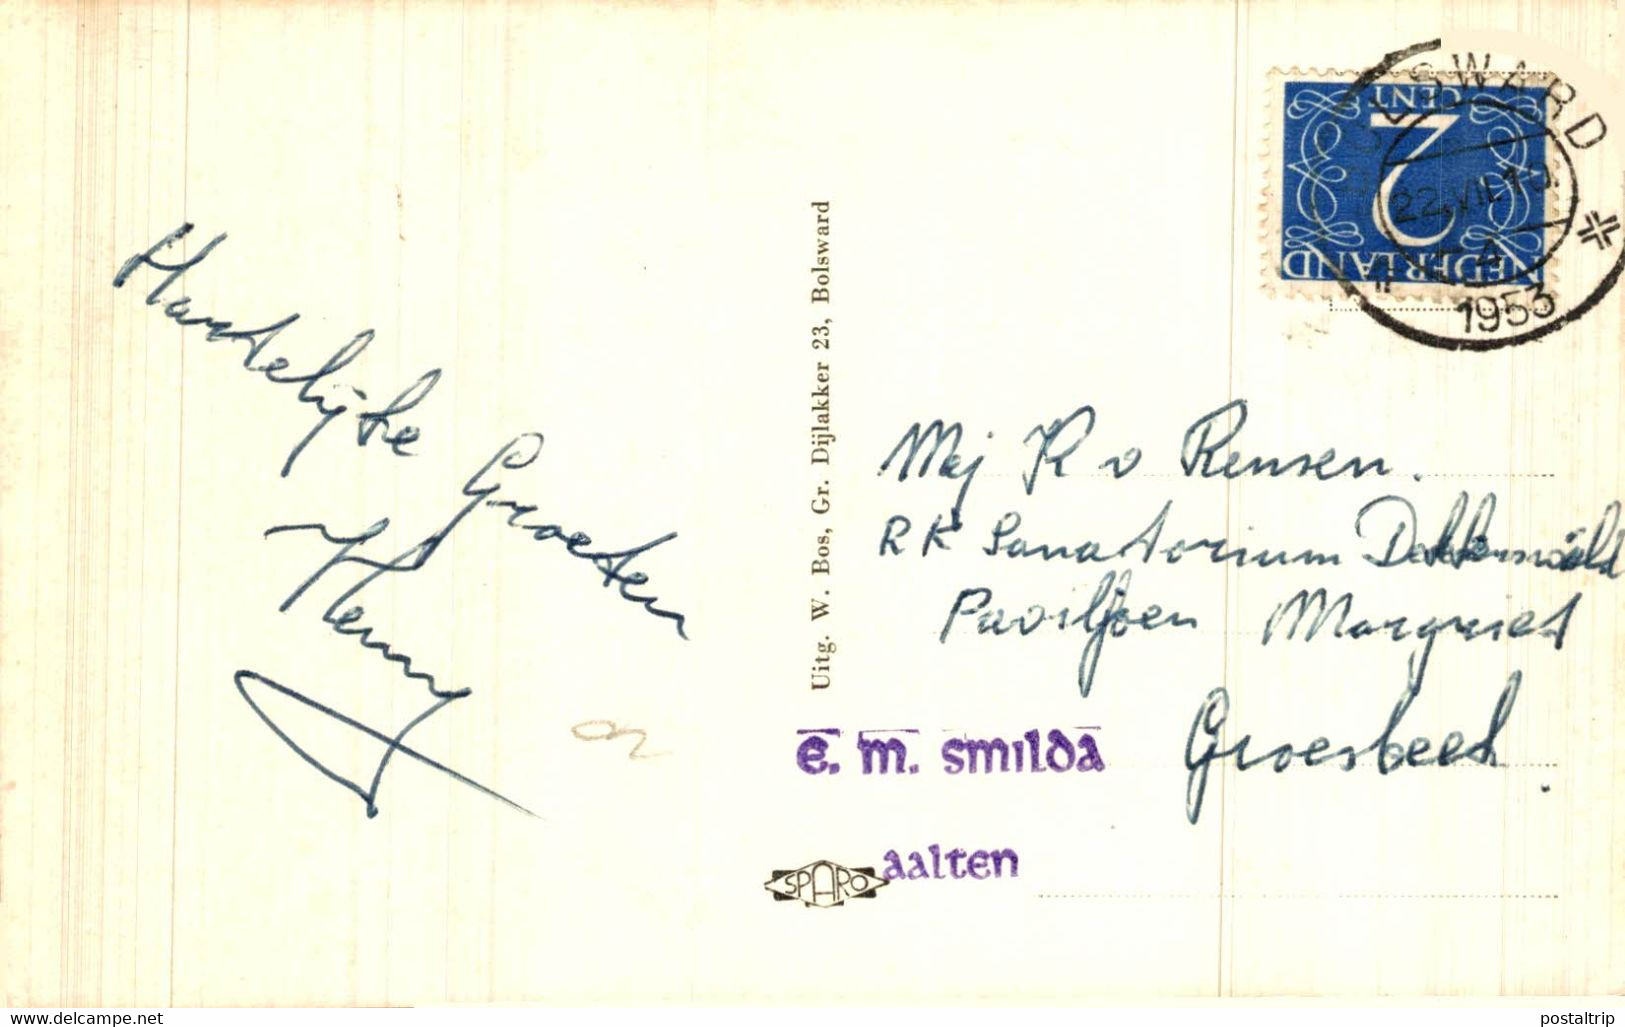 Hartelijke
Groeten
Henny
Uitg. W. Bos, Gr. Dijlakker 23, Bolsward
NEDERLAND
2
CENT
BOLSWARD
22.VII.10
1953
Mej K v Rensen.
RK Sanatorium Dekkerswald
Paviljoen Margriet
Groesbeek.
e. m. smilda
aalten
SPARO
www.delcampe.net
postaltrip